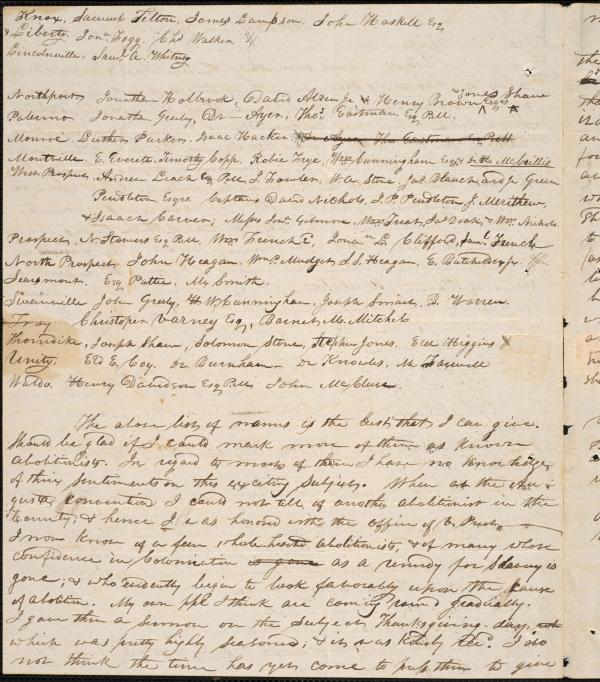 Knox. Samuel Tilton, James Lampson. John Haskell Esq
Liberty. Jona. Fogg. Chs Walker. #
Lincolnville. Saml. A. Whitney
Northport Jonathan Holbrook, David Alden Jr & Henry Brown Esqs Jones Shaw
Palermo Jonathn Greely, Dr — Ayer. Thos. Eastman Esq P.M.
Monroe Luther Parker, Isaac Hacker.
Montville E. Everett, Timothy Copp. Robie Frye, Wm Cunningham Esq
West Prospect, Andrew Leach Esq P.M. J. Fowler. W.A. Stone, Jas Blanchard Jr Green
Pendleton, Esqrs. Captains David Nichols, J. P. Pendleton J. Merithew
& Isaack Carver; Messs Jona. Gilmore, Wm Treat, Jas Doak & Wm. Nichols
Prospect, N. Stowers Esq P.M. Wm French, Jona. L. Clifford, Saml. French
North Prospect John Heagan, Wm P. Mudget, J.S. Heagan, E. Batchelder Jr. #
Searsmont. Esq Pattee. Mr Smith.
Swanville John Greely, H. W. Cunningham, Joseph Smart, B. Warren.
Troy Christopher Varney Esq, Barnet M. Mitchel
Thorndike, Joseph Shaw, Solomon Stone, Stephen Jones. Eler Higgins #
Unity. Eld E. Coy. Dr Burnham — Dr Knowles. Mr Farwell
Waldo. Henry Davidson Esq P.M. John McClure
The above list of names is the best that I can give.
Should be glad if I could mark more of them as known
abolitionists. In regard to most of them I have no knowledge
of their sentiments on this exciting subject. When at the Au-
gusta convention I could not tell of another abolitionist in the
County; & hence I was honored with the office of V. Pres.
I now know of a few whole hearted abolitionists, & of many whose
confidence in Colonization is gone as a remedy for Slavery is
gone; & who evidently begin to look favorably upon the cause
of abolition. My own ppl I think are coming round gradually.
I gave them a sermon on the subject, Thanksgiving-day,
which was pretty highly seasoned; & it was kindly recd. I do
not think the time has yet come to push them to give